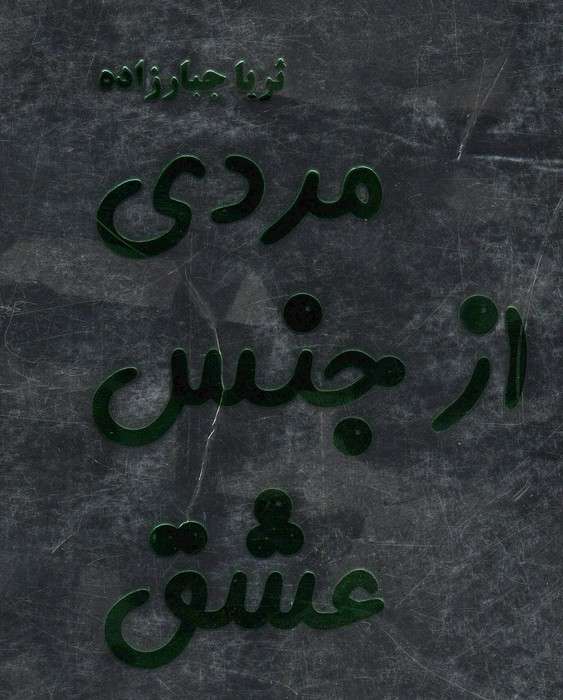 ثریا جبارزاده
مردی
از جنس
عشق